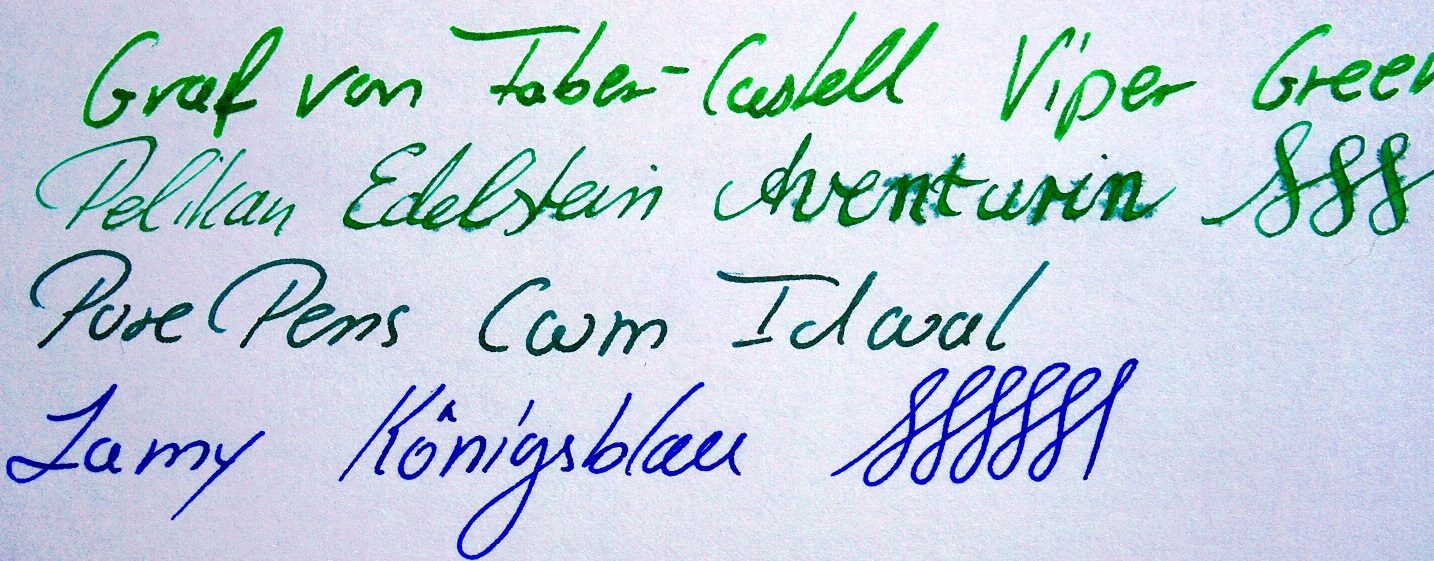 Graf von Faber-Castell Viper Green
Pelikan Edelstein Aventurin
Pure Pens Cwm Idwal
Lamy Königsblau